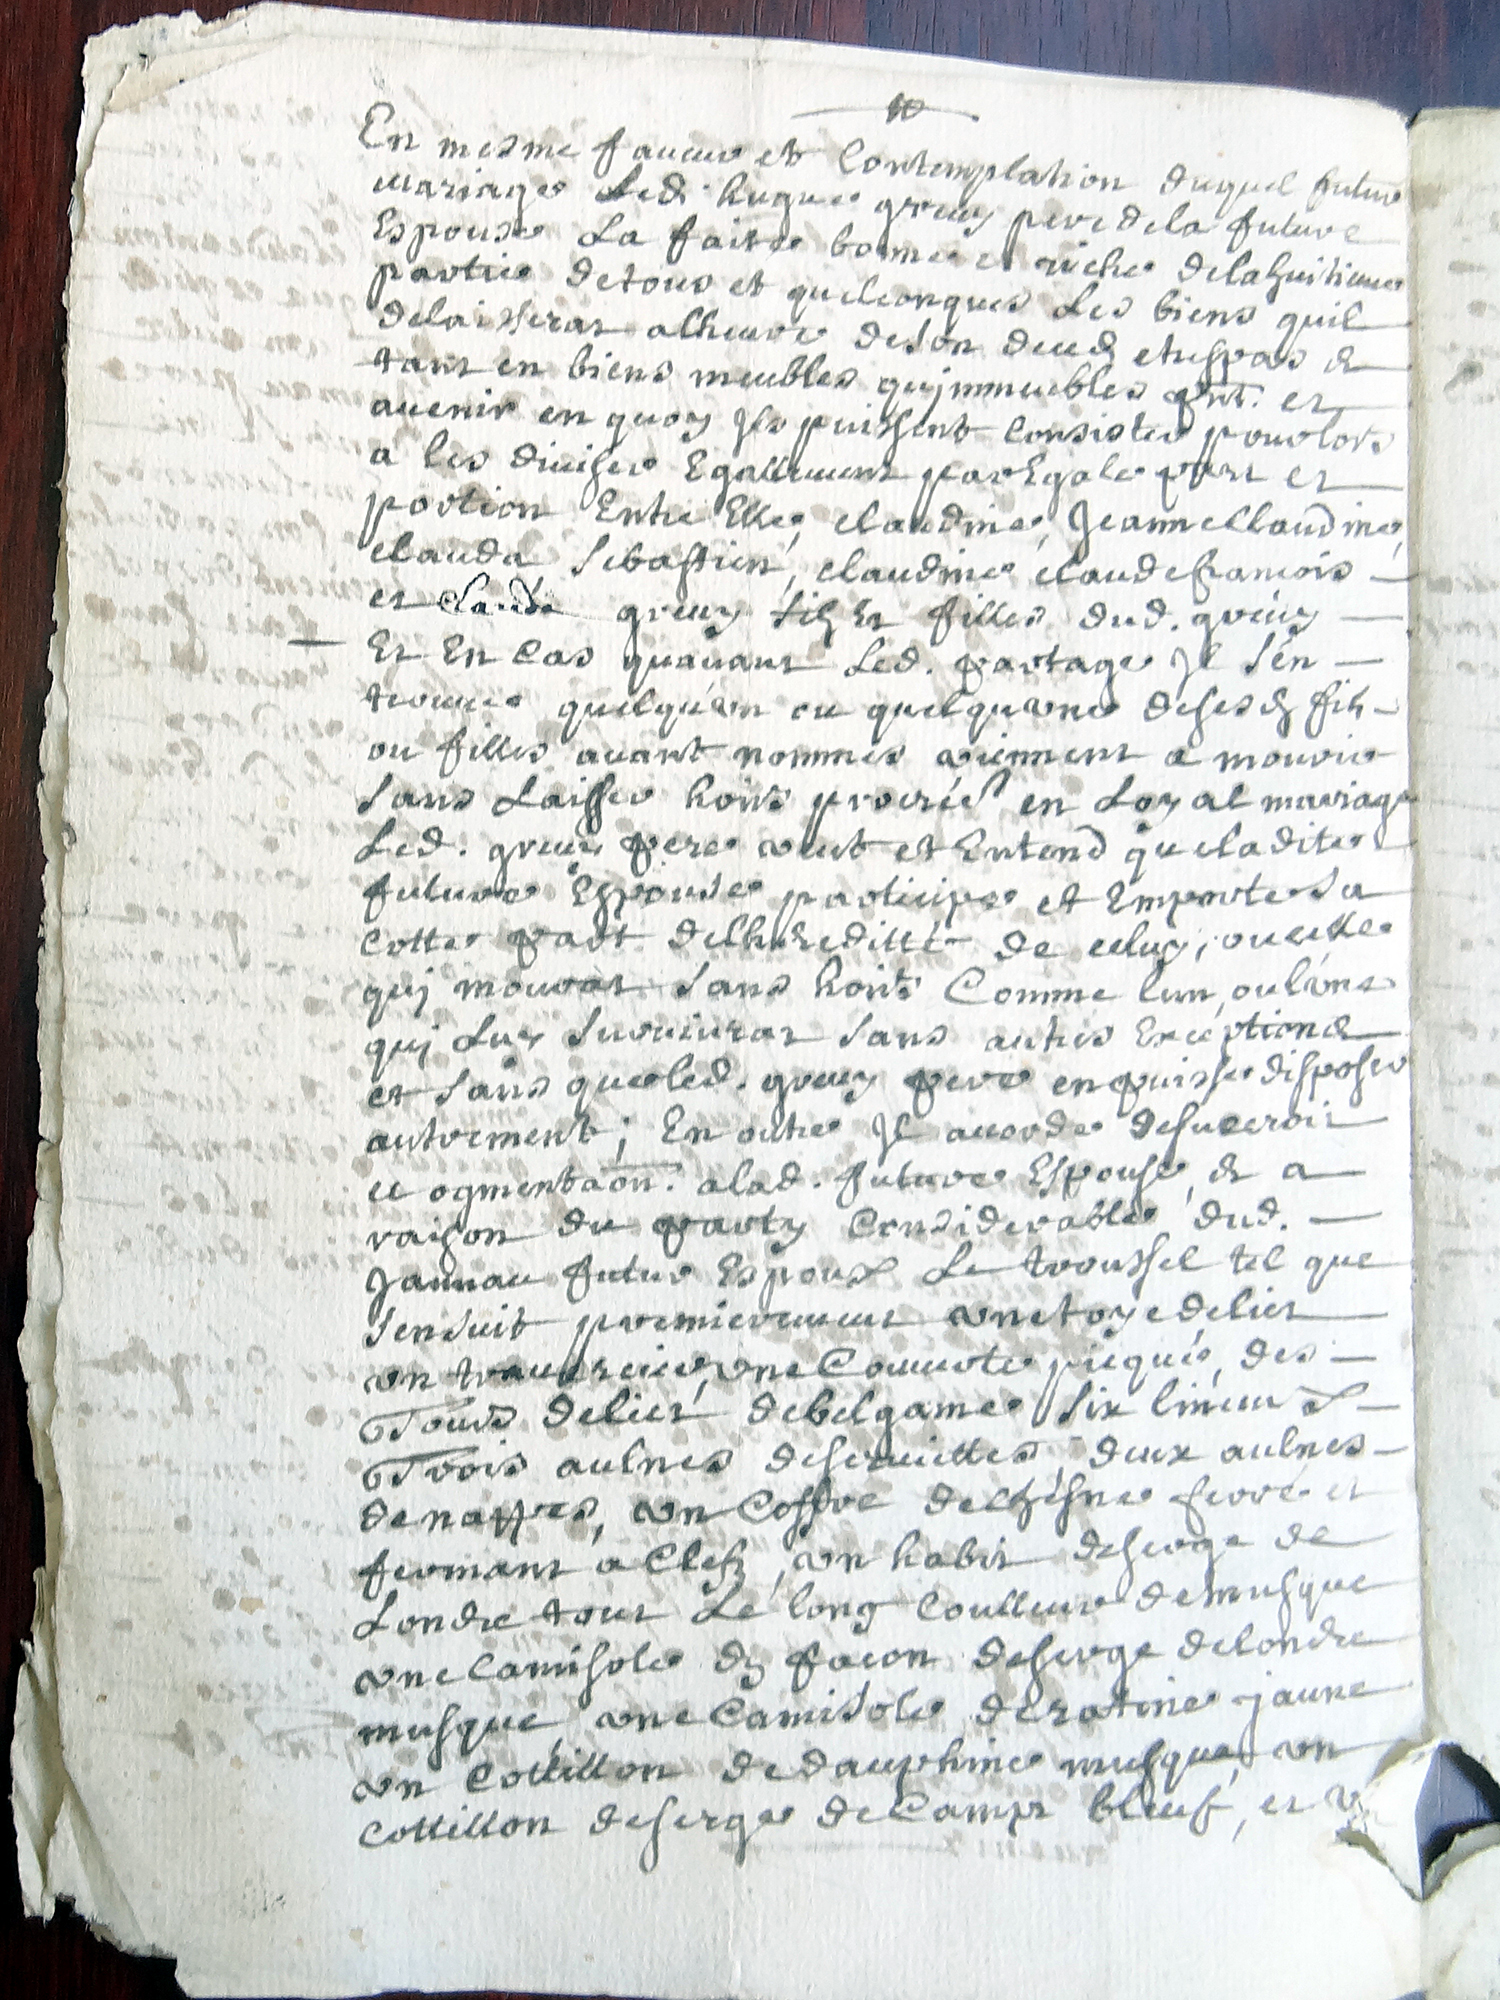 En mesme faueur et Contemplation duquel futur
mariage Led. hugue greuy pere dela future
Espouse La faite bonne et riche delahuitieme
partie detous et quelconques Les biens quil
delaisserat alheure deson deces etrespas &
tant en biens meubles qujmmeubles pnt. et
auenir en quoy jls puissent Consister pour lors
a les diuiser Egallement par Egale part et
portion Entre Elle, claudine, Jeanneclaudine,
clauda Sebastien, claudine claudefrancois
et Clauda greuy filz et filles dud. greuy
Et En Cas quauant Led. partage Jl sen
trouue quelqu'vn ou quelqu'vne deses d filz
ou filles auant nommes viennent a mourir
sans Laisser hoirs procréés en Loyal mariage
Led. greuy pere veut et Entend queladite
future Espouse participe et Emporte sa
Cotte part delhereditté de celuy, oucelle
quj mourat sans hoirs Comme lun, oulvne
quj Luy suruiurat sans autres Exceptions
et sans queled. greuy pere enpuisse disposer
autrement; En outre Jl accorde desucroit
et ogmentaon. alad. future Espouse, & a
raison du party Considerable dud.
Jannau futur Espoux Le troussel tel que
sensuit premierement vnetoyedelict
vn trauersier, vneCouuerte picqué, des
Tours delict debelgame six linceux
Trois aulnes deseruiettes, deux aulnes
denappes, vn Coffre dechesne ferré et
fermant a Clefz, vn habit deserge de
Londre tout Le long Coulleur demusque
vneCamisole dy facon deserge delondre
musque, vneCamisole deratine jaune
vn Cottillon dedauphine musque, vn
Cottillon deserge deCamps bleuf, et vn